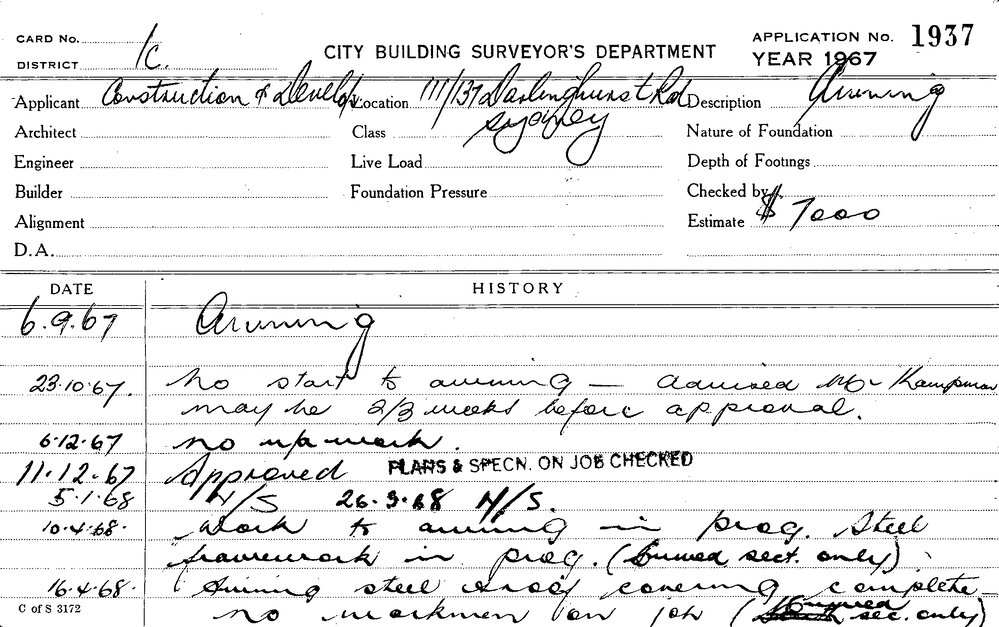 CARD No.
DISTRICT 1c.
CITY BUILDING SURVEYOR'S DEPARTMENT
APPLICATION No. 1937
YEAR 1967
Applicant Construction & Develop Location 111/137 Darlinghurst Rd Description Awning
Architect Class Sydney Nature of Foundation
Engineer Live Load Depth of Footings
Builder Foundation Pressure Checked by
Alignment Estimate $ 7000
D.A.
DATE HISTORY
6.9.67 Awning
23.10.67. No start to awning — advised Mr Kampman
may be 2/3 weeks before approval.
6.12.67 no work.
11.12.67 Approved PLANS & SPECN. ON JOB CHECKED
5.1.68 N/S 26.3.68 N/S.
10.4.68. Work to awning in prog. Steel
framework in prog. ( sect. only)
16.4.68. Awning steel roof covering complete
C of S 3172 no workmen on job ( sec. only)